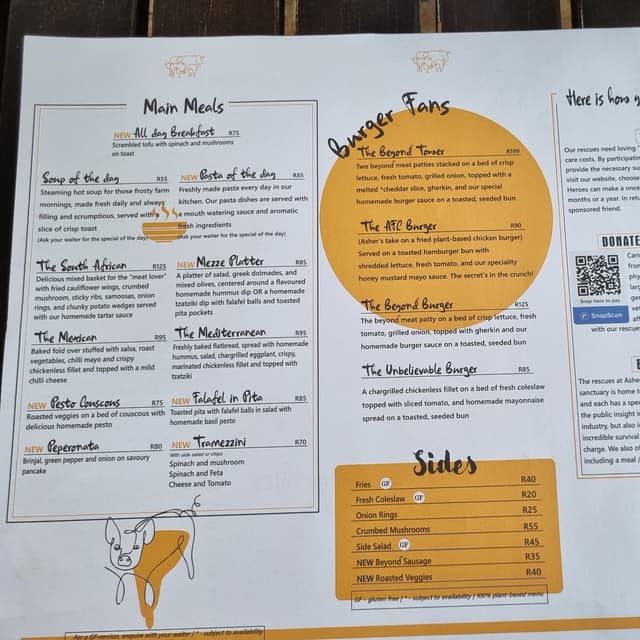 Main Meals
NEW All day Breakfast R75
Scrambled tofu with spinach and mushrooms
on toast
Soup of the day R55
Steaming hot soup for those frosty farm
mornings, made fresh daily and always
filling and scrumptious, served with a
slice of crisp toast
(Ask your waiter for the special of the day)
NEW Pasta of the day R85
Freshly made pasta every day in our
kitchen. Our pasta dishes are served with
a mouth watering sauce and aromatic
fresh ingredients
(Ask your waiter for the special of the day)
The South African R125
Delicious mixed basket for the "meat lover"
with fried cauliflower wings, crumbed
mushroom, sticky ribs, samoosas, onion
rings, and chunky potato wedges served
with our homemade tartar sauce
NEW Mezze Platter R85
A platter of salad, greek dolmades, and
mixed olives, centered around a flavoured
homemade hummus dip OR a homemade
tzatziki dip with falafel balls and toasted
pita pockets
The Mexican R95
Baked fold over stuffed with salsa, roast
vegetables, chilli mayo and crispy
chickenless fillet and topped with a mild
chilli cheese
The Mediterranean R95
Freshly baked flatbread, spread with homemade
hummus, salad, chargrilled eggplant, crispy,
marinated chickenless fillet and topped with
tzatziki
NEW Pesto Couscous R75
Roasted veggies on a bed of couscous with
delicious homemade pesto
NEW Falafel in Pita R85
Toasted pita with falafel balls in salad with
homemade basil pesto
NEW Peperonata R80
Brinjal, green pepper and onion on savoury
pancake
NEW Tramezzini R70
With side salad or chips
Spinach and mushroom
Spinach and Feta
Cheese and Tomato
For a GF-version, enquire with your waiter / * - subject to availability
Burger Fans
The Beyond Tower R199
Two beyond meat patties stacked on a bed of crisp
lettuce, fresh tomato, grilled onion, topped with a
melted *cheddar slice, gherkin, and our special
homemade burger sauce on a toasted, seeded bun
The AFC Burger R90
(Asher's take on a fried plant-based chicken burger)
Served on a toasted hamburger bun with
shredded lettuce, fresh tomato, and our speciality
honey mustard mayo sauce. The secret's in the crunch!
The Beyond Burger R125
The beyond meat patty on a bed of crisp lettuce, fresh
tomato, grilled onion, topped with gherkin and our
homemade burger sauce on a toasted, seeded bun
The Unbelievable Burger R85
A chargrilled chickenless fillet on a bed of fresh coleslaw
topped with sliced tomato, and homemade mayonnaise
spread on a toasted, seeded bun
Sides
Fries GF R40
Fresh Coleslaw GF R20
Onion Rings R25
Crumbed Mushrooms R55
Side Salad GF R45
NEW Beyond Sausage R35
NEW Roasted Veggies R40
GF - gluten free / * - subject to availability / 100% plant-based menu
Here is how
Our rescues need loving
care costs. By participatin
provide the necessary su
visit our website, choose
Heroes can make a once
months or a year. In retu
sponsored friend.
DONATE
Snap here to pay
SnapScan
with our rescue
The rescues at Ashe
sanctuary is home t
and each has a spe
the public insight i
industry, but also i
incredible survival
charge. We also of
including a meal /